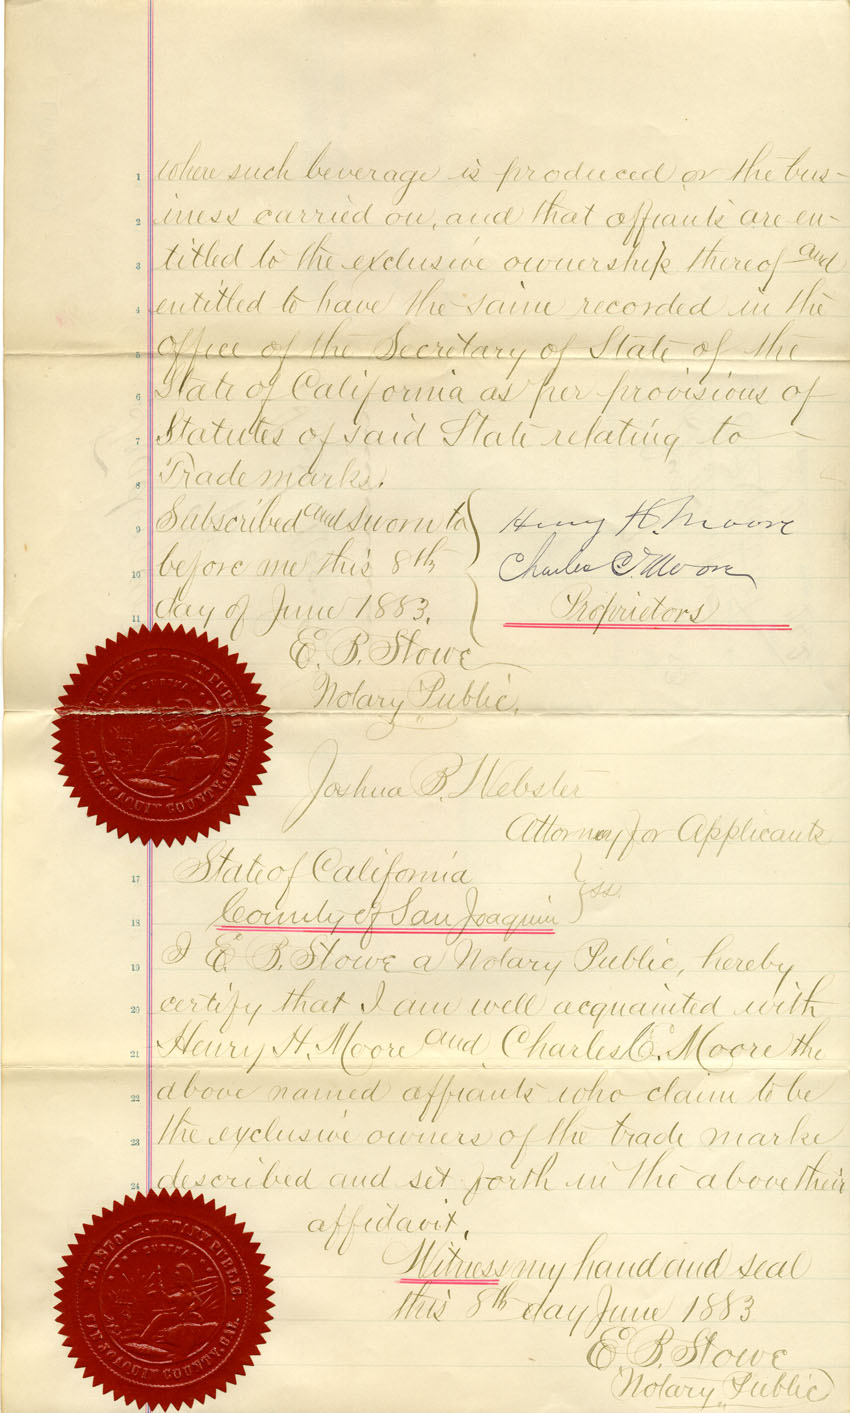 1 where such beverage is produced or the bus-
2 iness carried on, and that affiants are en-
3 titled to the exclusive ownership thereof and
4 entitled to have the same recorded in the
5 office of the Secretary of State of the
6 State of California as per provisions of
7 Statutes of said State relating to
8 Trade marks.
9 Subscribed and sworn to Henry H. Moore
10 before me this 8th Charles C. Moore
11 day of June 1883. Proprietors
E. B. Stowe
Notary Public.
NOTARY PUBLIC
SAN JOAQUIN COUNTY, CAL.
Joshua B. Webster
Attorney for Applicants
17 State of California
ss.
18 County of San Joaquin
19 I E. B. Stowe a Notary Public, hereby
20 certify that I am well acquainted with
21 Henry H. Moore and Charles C. Moore the
22 above named affiants who claim to be
23 the exclusive owners of the trade marke
24 described and set forth in the above their
affidavit.
Witness my hand and seal
this 8th day June 1883
E. B. Stowe
Notary Public
NOTARY PUBLIC
EUREKA
SAN JOAQUIN COUNTY, CAL.